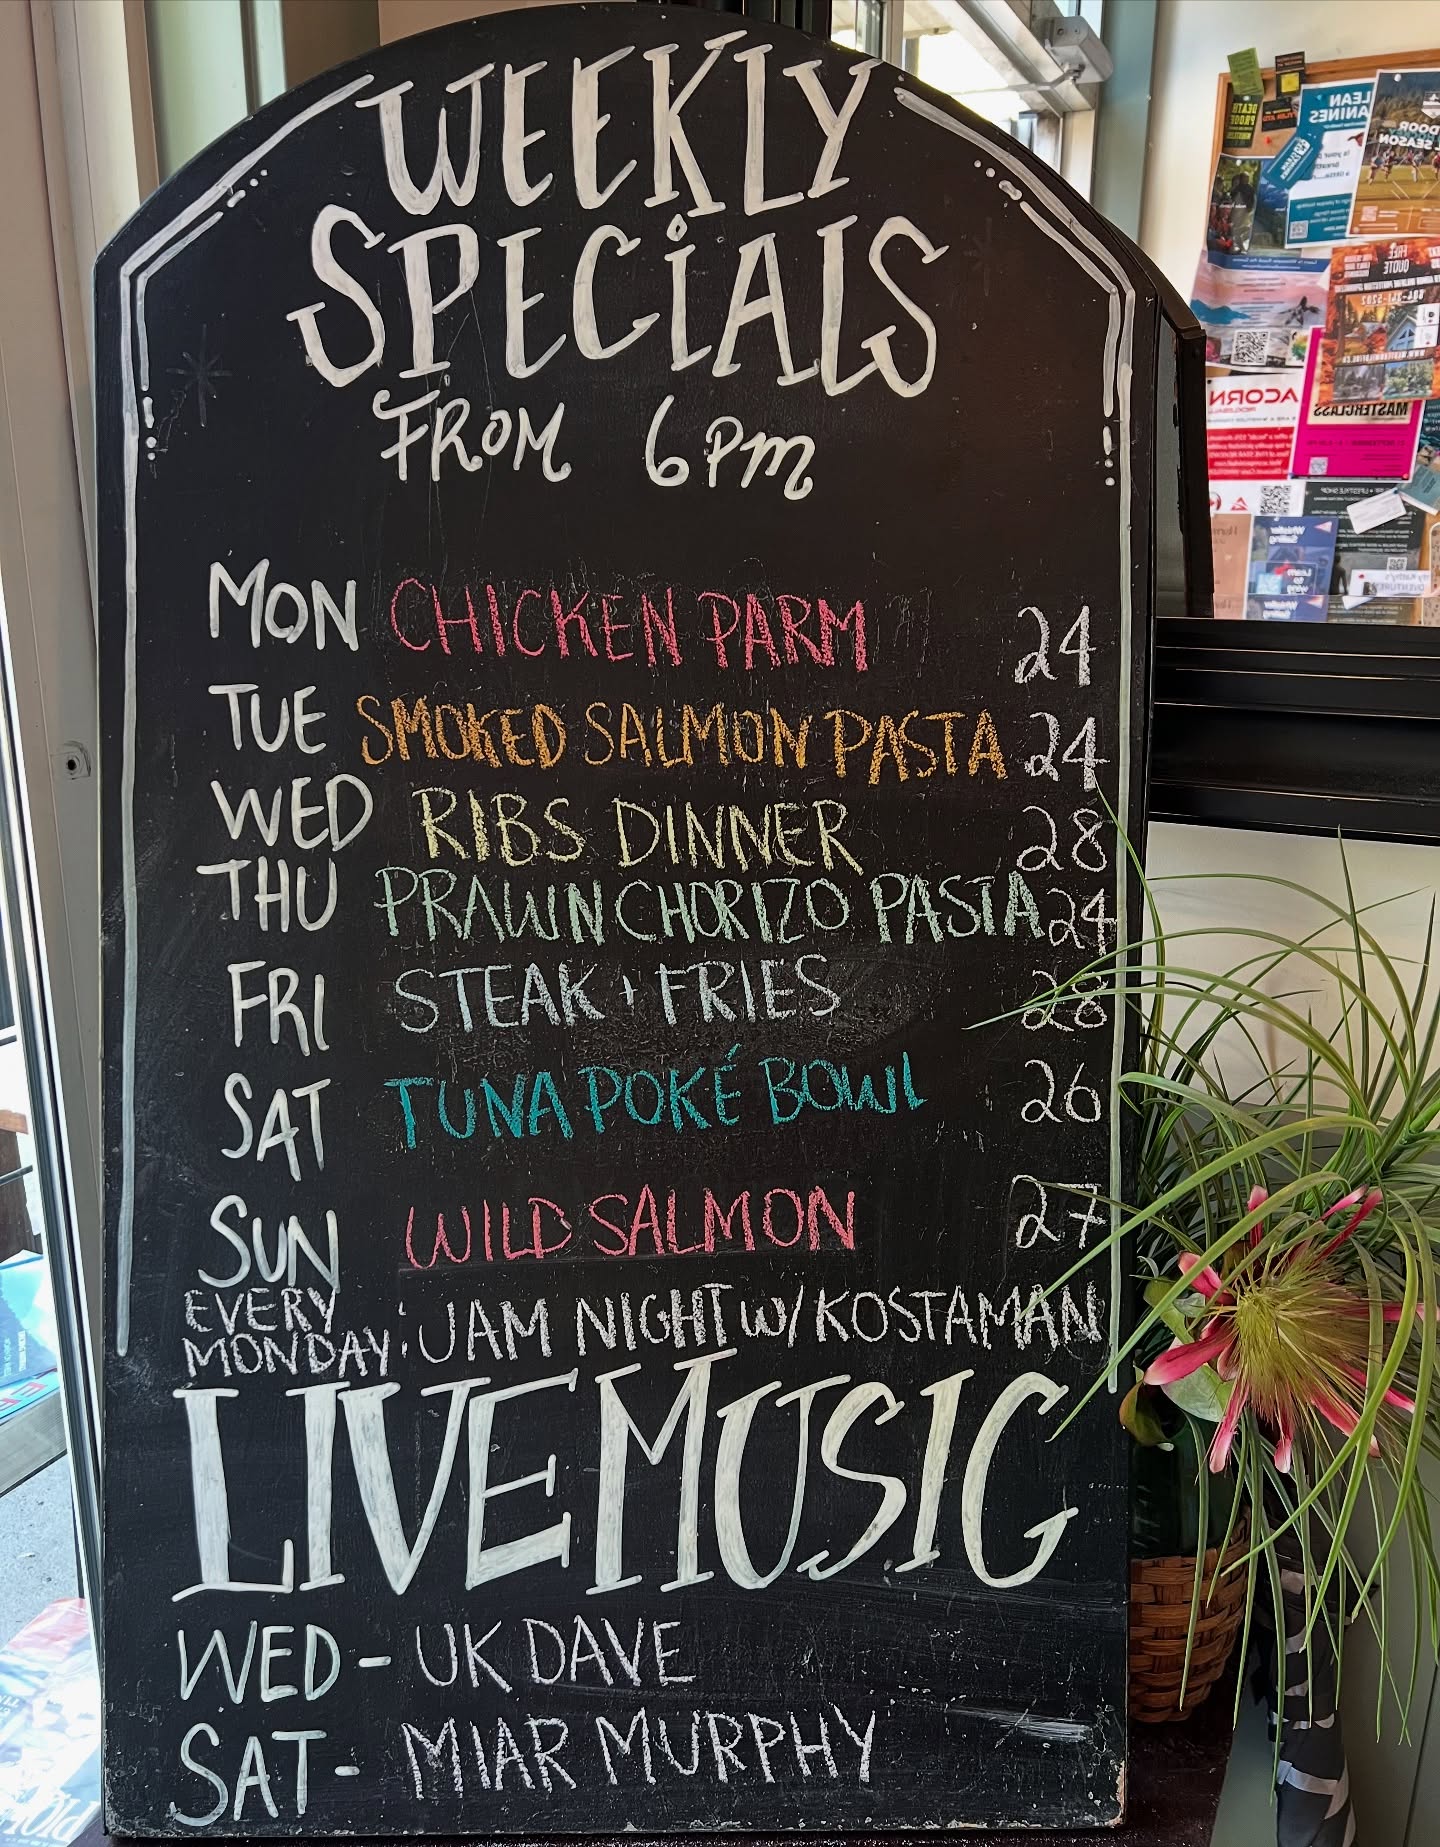 WEEKLY
SPECiALS
FROM 6PM
MON CHICKEN PARM 24
TUE SMOKED SALMON PASTA 24
WED RIBS DINNER 28
THU PRAWN CHORIZO PASTA 24
FRI STEAK + FRIES 28
SAT TUNA POKÉ BOWL 26
SUN WILD SALMON 27
EVERY
MONDAY : JAM NIGHT W/ KOSTAMAN
LIVE MUSIC
WED - UK DAVE
SAT - MIAR MURPHY
DEATH
PROOF
LEAN
ANINES
DOOR
SEASON
FREE
QUOTE
ACORN
MASTERCLASS